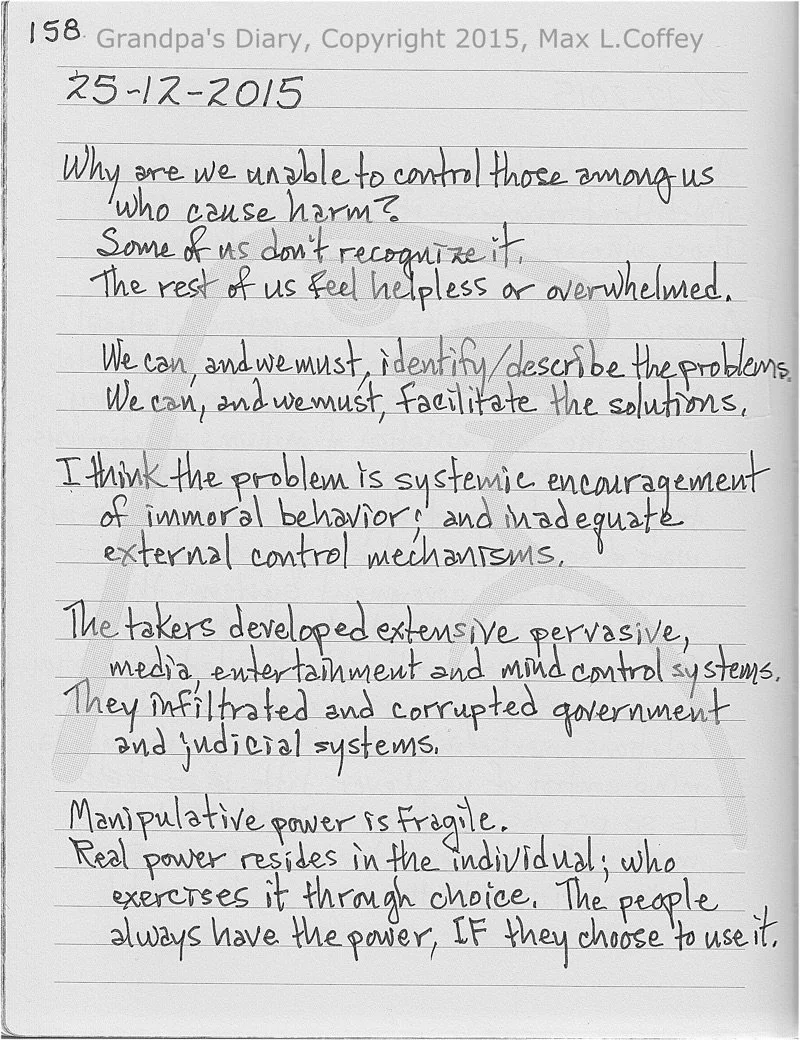 158 Grandpa's Diary, Copyright 2015, Max L.Coffey
25-12-2015
Why are we unable to control those among us
who cause harm?
Some of us don't recognize it.
The rest of us feel helpless or overwhelmed.
We can, and we must, identify/describe the problems.
We can, and we must, facilitate the solutions.
I think the problem is systemic encouragement
of immoral behavior; and inadequate
external control mechanisms.
The takers developed extensive pervasive,
media, entertainment and mind control systems.
They infiltrated and corrupted government
and judicial systems.
Manipulative power is fragile.
Real power resides in the individual; who
exercises it through choice. The people
always have the power, IF they choose to use it.